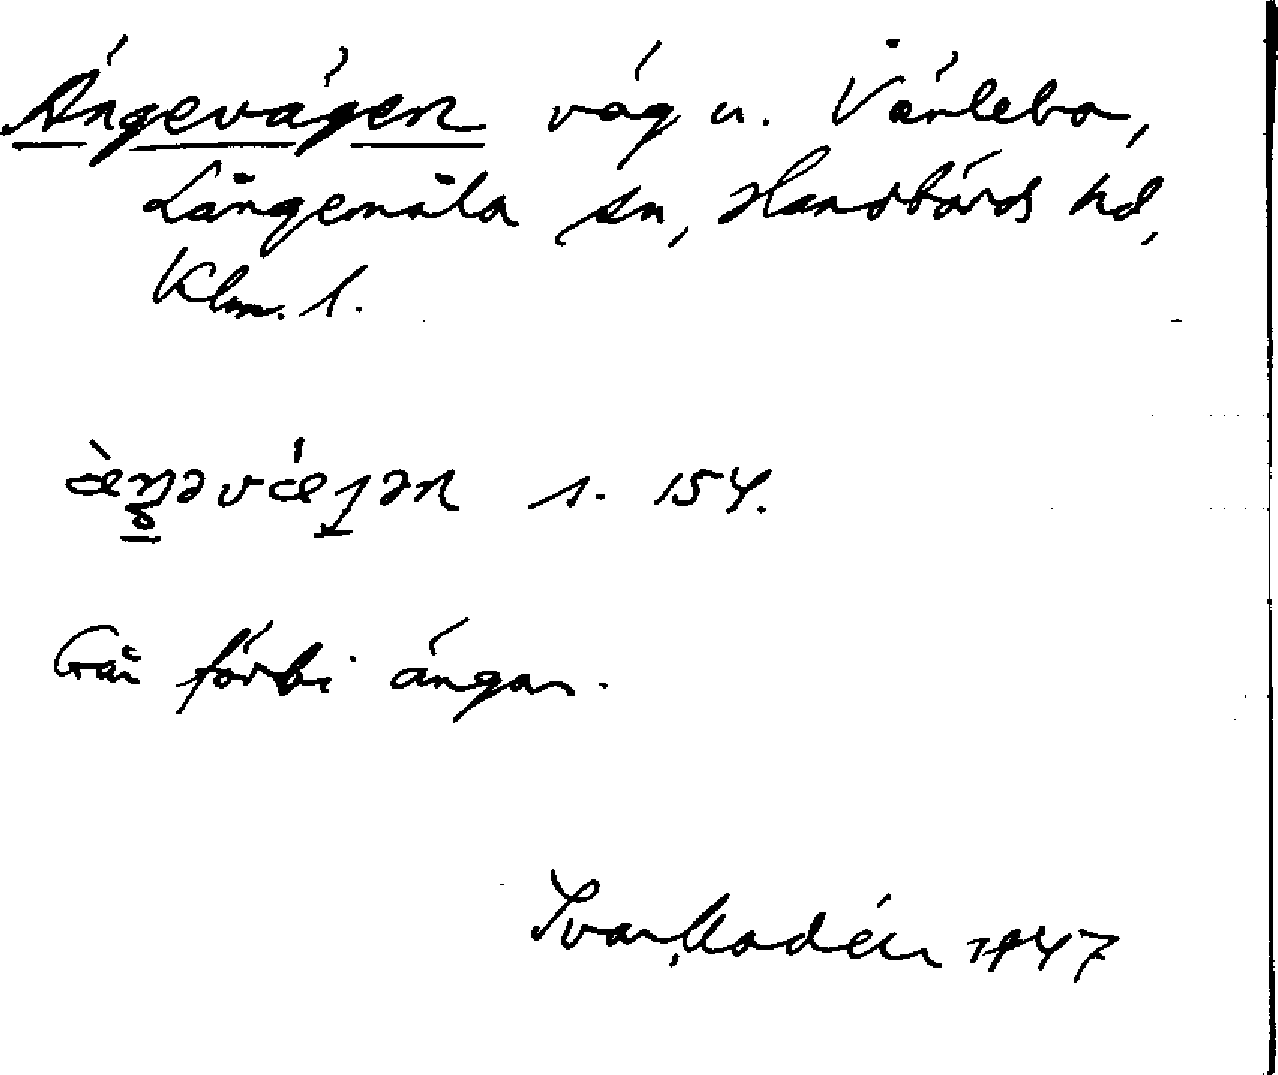 Ängevägen väg u. Värlebo,
Långemåla sn, Handbörds hd,
Klm. l.
æ̀ŋəvǽgən s. 154.
Går förbi ängar.
Ivar Modéer 1947